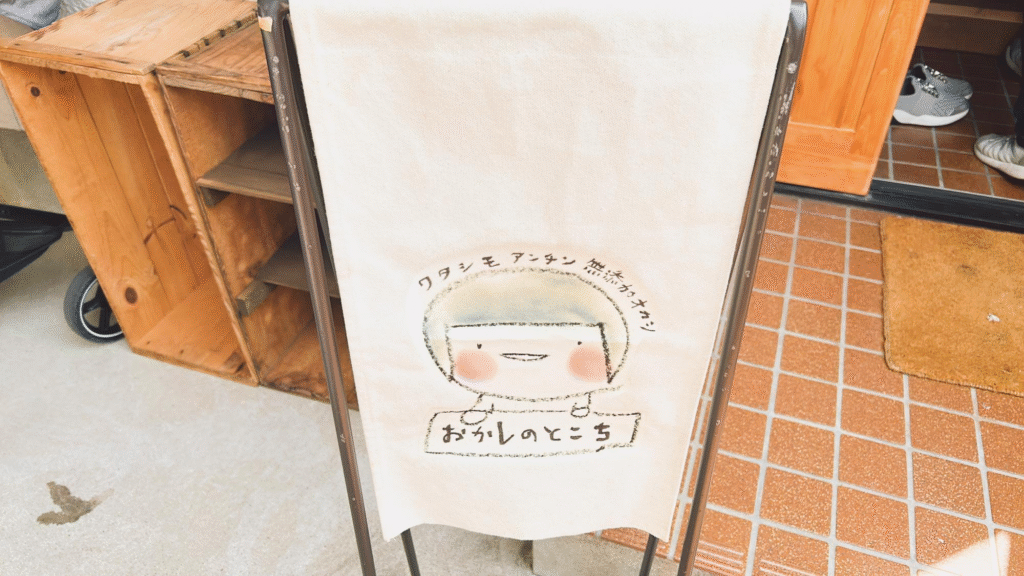 ワタシモ アンチン 無添加オカシ
おかしのとこち